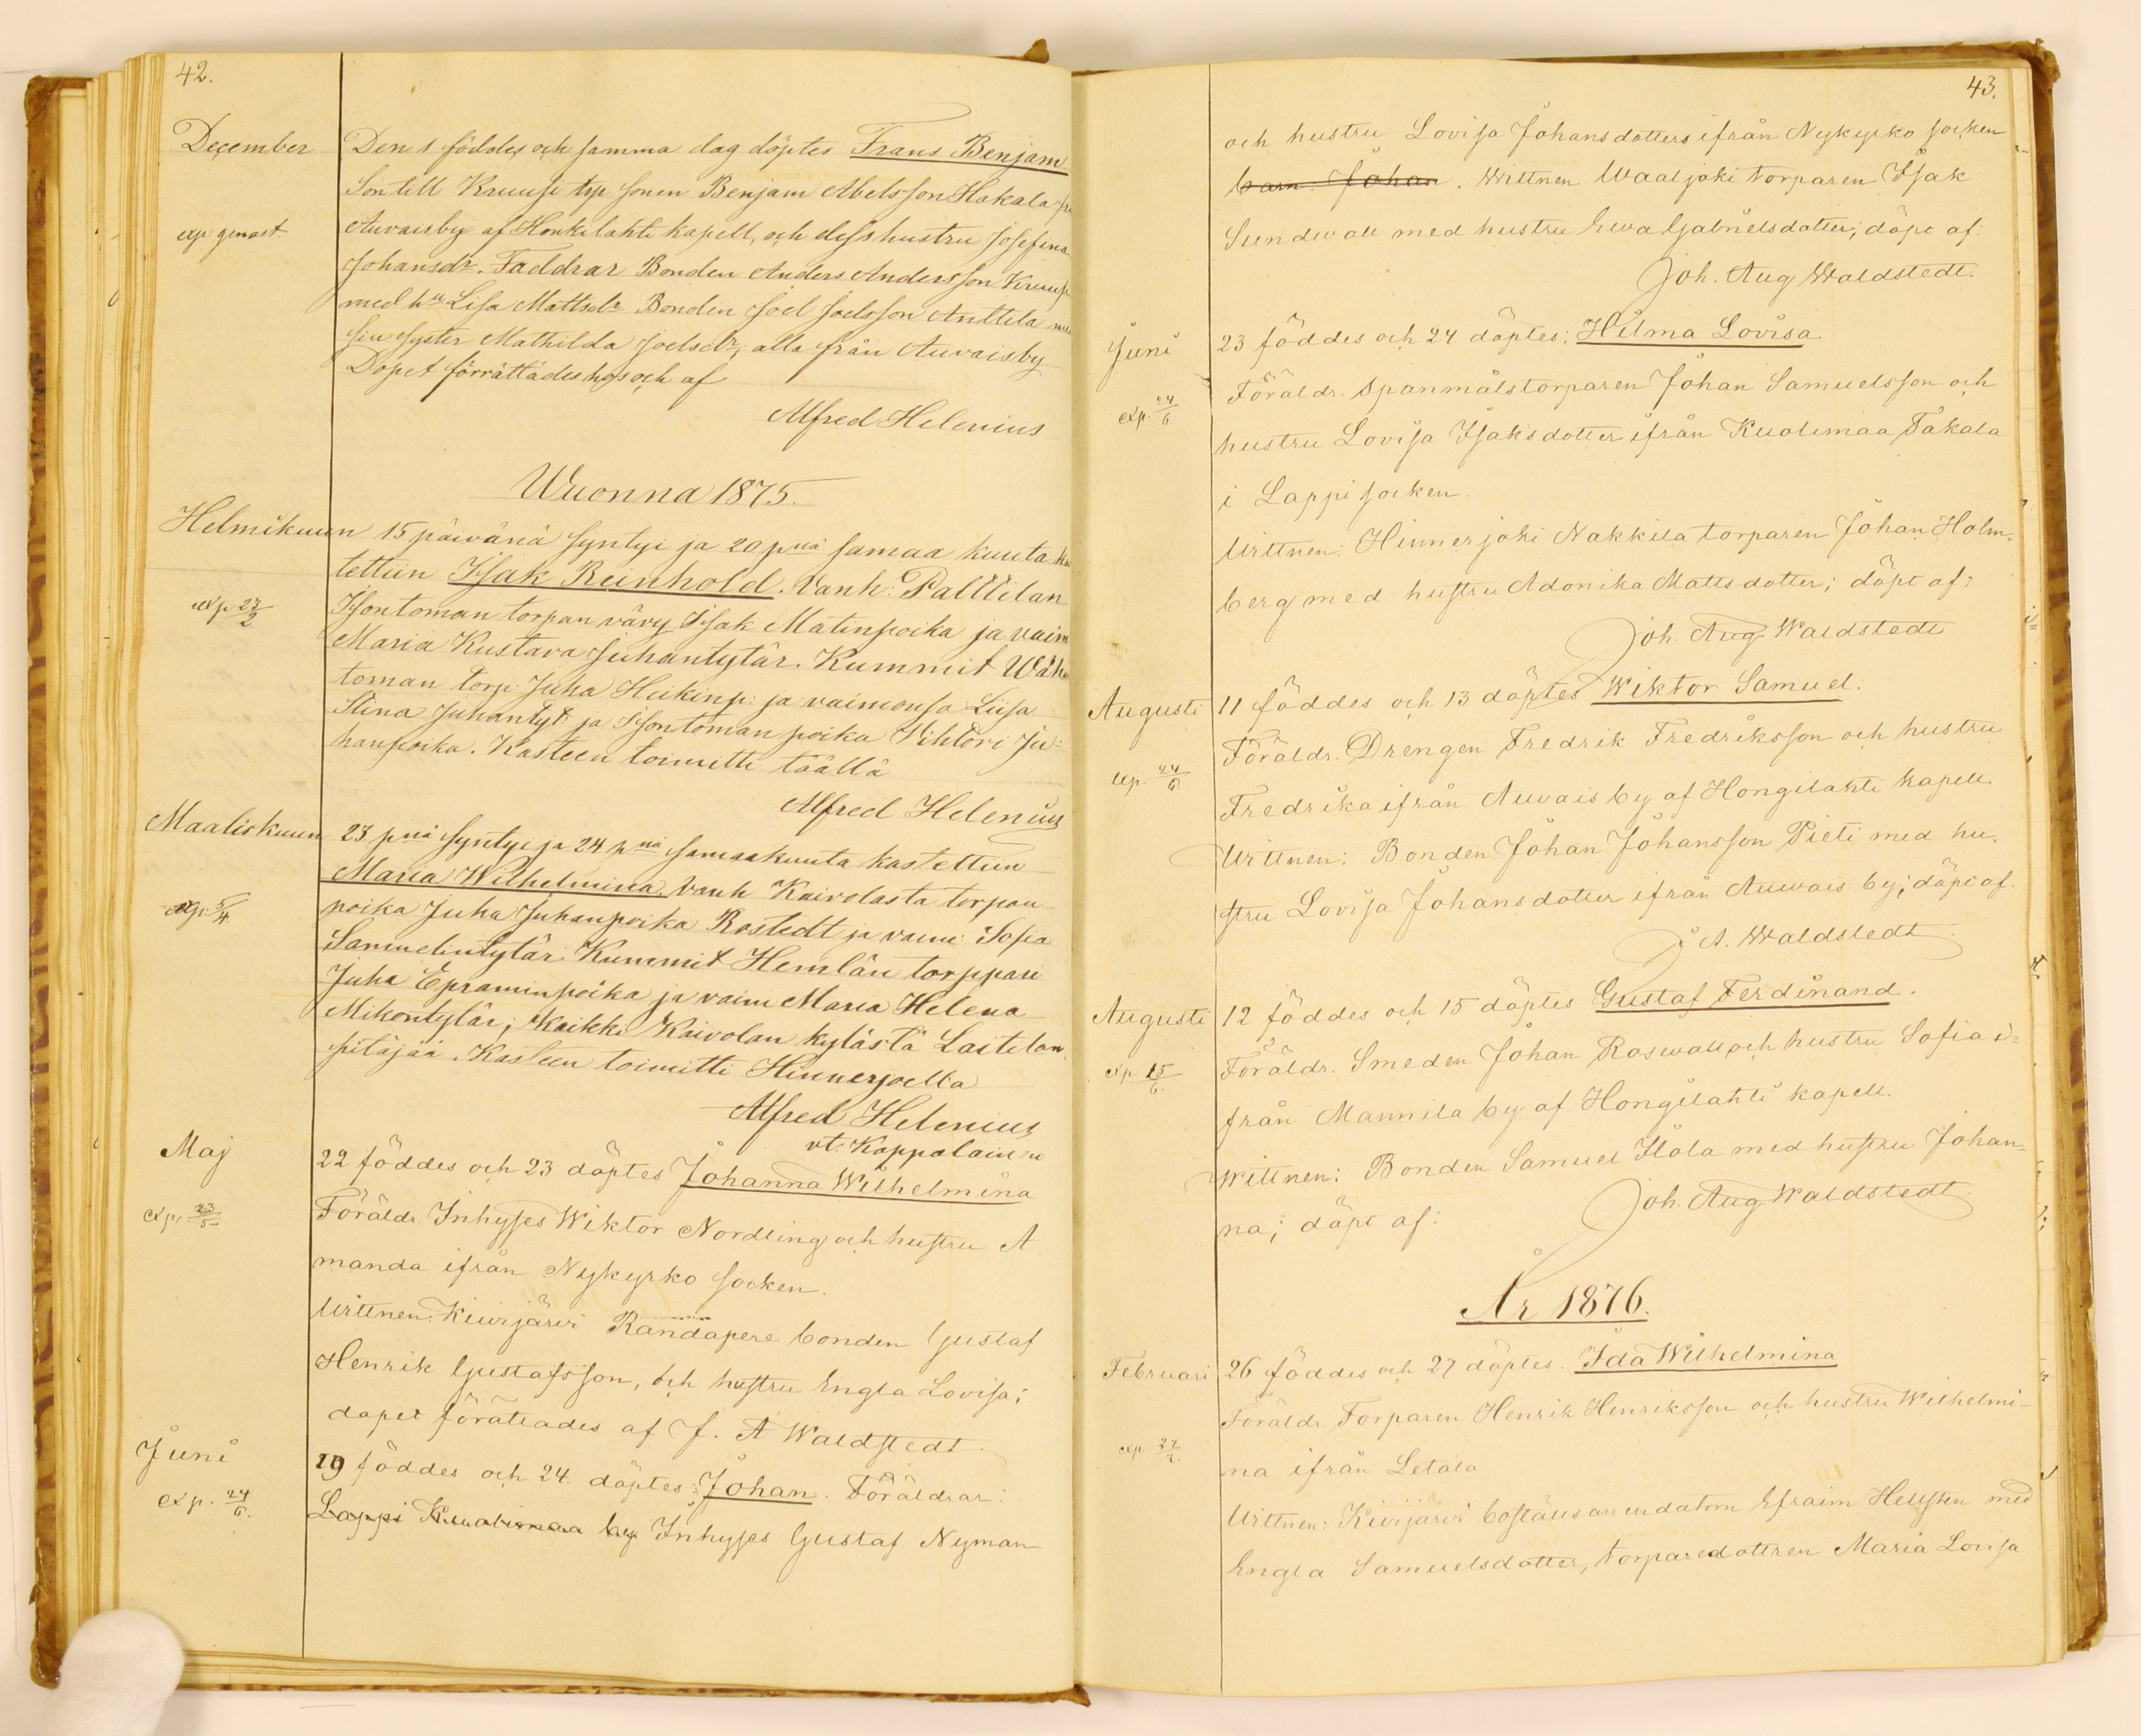 42.
December
Den 1 föddes och samma dag döptes Frans Benjam
Son till Kruusi trp sonen Benjam Abelsson Hakala
exp: genast
Auvaisby af Honkilahti kapell, och dess hustru Josefina
Johansdr. Faddrar Bonden Anders Andersson Kruusi
med hu Lisa Mattsdr Bonden Joel Joelsson Anttila
sin syster Mathilda Joelsdr, alla från Auvaisby
Dopet förrättades hos och af
Alfred Helenius
Wuonna 1875.
Helmikuun 15 päivänä syntyi ja 20 pnä samaa kuuta kas
tettiin Isak Reinhold. Vanh: Palttilan
exp 27/2
Isontoman torpan vävy Isak Matinpoika ja vaim
Maria Kustava Juhantytär. Kummit Wähä
toman torp: Juha Heikinp: ja vaimonsa Liisa
Stina Juhantyt: ja Isontoman poika Vihtori Ju=
hanpoika. Kasteen toimitti täällä
Alfred Helenius
Maaliskuun 23 pnä syntyi ja 24 pnä samaakuuta kastettiin
Maria Wilhelmina. Vanh Kaivolasta torpan
exp: 5/4.
poika Juha Juhanpoika Rostedt ja vaim: Sofia
Samuelintytär. Kummit Hemlän torppari
Juha Epraminpoika ja vaim Maria Helena
Mikontytär; kaikki Kaivolan kylästä Laitilan
pitäjää. Kasteen toimitti Hinnerjoella
Alfred Helenius
vt. Kappalainen
Maj
22 föddes och 23 döptes Johanna Wilhelmina
exp. 23/5
Föräldr. Inhyses Wiktor Nordling och hustru A
manda ifrån Nykyrko socken.
Wittnen: Kiwijärvi Randapere bonden Gustaf
Henrik Gustafsson, och hustru Engla Lovisa;
dopet förätades af J. A Waldstedt
Juni
19 föddes och 24. döptes: Johan. Föräldrar:
exp. 24/6.
Lappi Kuolimaa by Inhyses Gustaf Nyman
43.
och hustru Lovisa Johansdotters ifrån Nykyrko socken
barn: Johan. Wittnen Waaljoki torparen Isak
Sundwall med hustru Ewa Gabrielsdotter; döpt af:
Joh. Aug Waldstedt.
Juni
23 föddes och 24 döptes: Hilma Lovisa
exp. 24/6
Föräldr. spanmålstorparen Johan Samuelsson och
hustru Lovisa Isaksdotter ifrån Kuolimaa Takala
i Lappi socken.
Wittnen: Hinnerjoki Nakkila torparen Johan Holm-
berg med hustru Adonika Mattsdotter; döpt af:
Joh. Aug. Waldstedt
Augusti
11 föddes och 13 döptes Wiktor Samuel.
exp. 24/6.
Föräldr. Drengen Fredrik Fredriksson och hustru
Fredrika ifrån Auvais by af Hongilahti kapell.
Wittnen: Bonden Johan Johansson Pieti med hu-
stru Lovisa Johansdotter ifrån Auwais by; döpt af.
J A. Waldstedt
Augusti
12 föddes och 15 döptes Gustaf Ferdinand.
exp. 15/6.
Föräldr. Smeden Johan Roswall och hustru Sofia i=
från Mannila by af Hongilahti kapell.
Wittnen: Bonden Samuel Iiola med hustru Johan=
na; döpt af: Joh. Aug. Waldstedt.
År 1876.
Februari
26 föddes och 27 döptes. Ida Wilhelmina
exp. 27/2.
Föräldr. Torparen Henrik Henriksson och hustru Wilhelmi-
na ifrån Letala
Wittnen: Kiwijärvi boställs arrendatorn Efraim Hellsten med
Engla Samuelsdotter, torparedottren Maria Lovisa